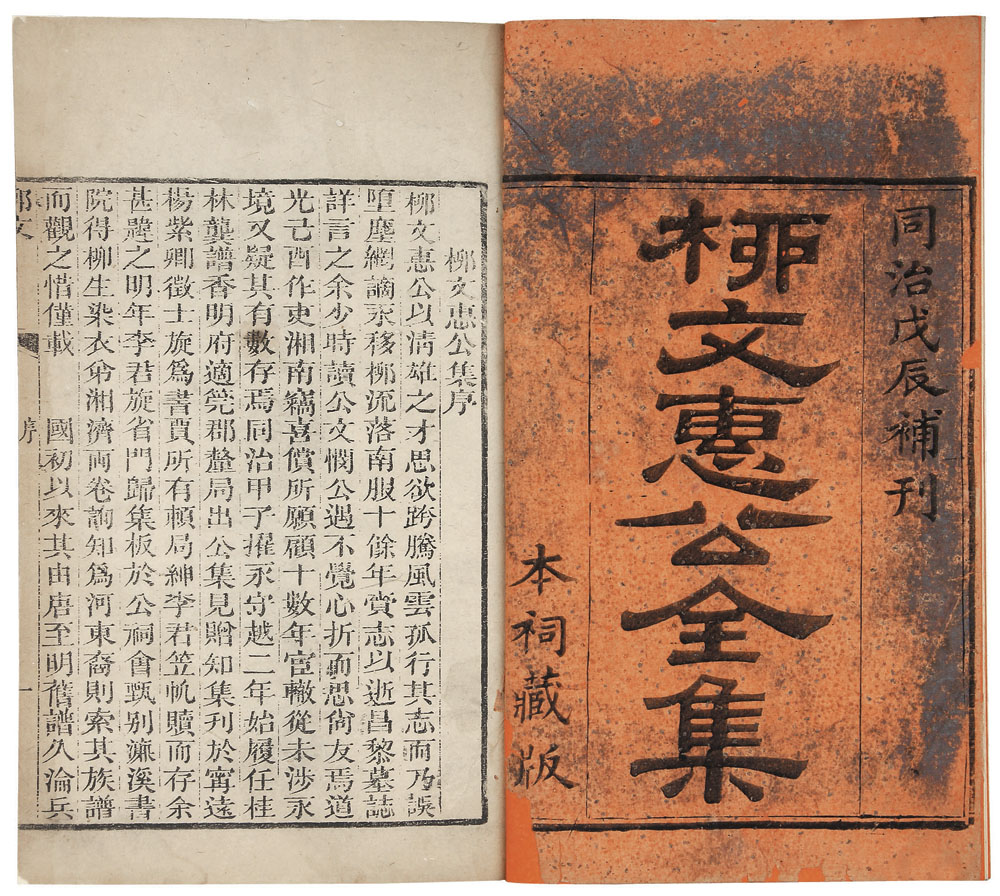 同治戊辰補刊
柳文惠公全集
本祠藏版
柳文惠公集序
柳文惠公以清雄之才思欲跨騰風雲孤行其志而乃誤
墮塵網謫永移柳流落南服十餘年賫志以逝昌黎墓誌
詳言之余少時讀公文憫公遇不覺心折而思尙友焉道
光己酉作吏湘南竊喜償所願顧十數年宦轍從未涉永
境又疑其有數存焉同治甲子擢永守越二年始履任桂
林龔譜香明府適筦郡釐局出公集見贈知集刊於甯遠
楊紫卿徵士旋爲書賈所有頼局紳李君笠帆贖而存余
甚韙之明年李君旋省門歸集板於公祠會甄别濂溪書
院得柳生染衣弟湘濟兩卷詢知爲河東裔則索其族譜
而觀之惜僅載 國初以來其由唐至明舊譜久淪兵
柳文 序 一